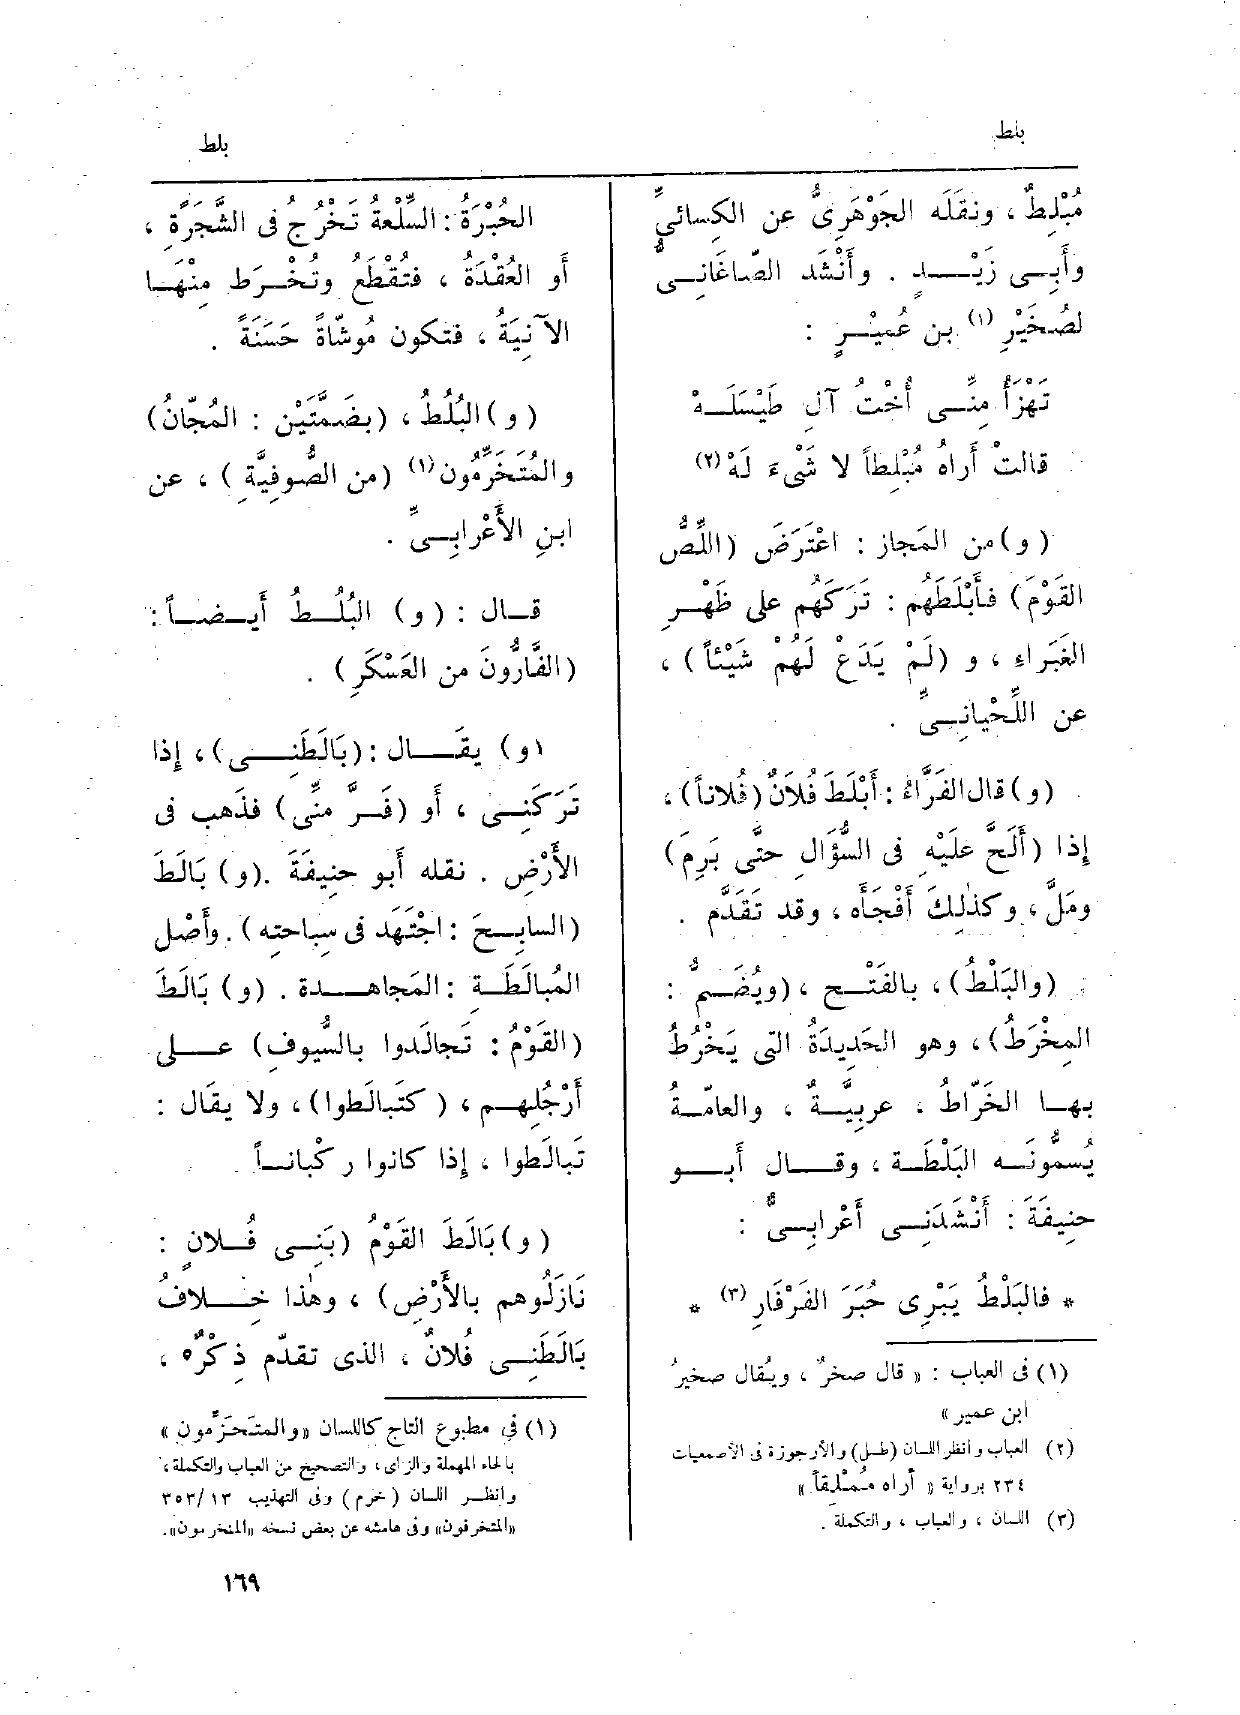 بلط
بلط
مُبْلِطٌ ، ونقَلَه الجَوْهَرِىُّ عن الكِسائىِّ
وأَبِى زَيْدٍ . وأَنْشَد الصّاغَانِىُّ
لصُخَيْرِ (١) بن عُمَيْرٍ :
تَهْزَأُ مِنِّى أُخْتُ آلِ طَيْسَلَهْ
قالتْ أَراهُ مُبْلِطاً لا شَىْءَ لَهْ (٢)
( و ) من المَجاز : اعْتَرَضَ (اللِّصُّ
القَوْمَ) فأَبْلَطَهُم : تَرَكَهُم على ظَهْرِ
الغَبَراءِ ، و (لَمْ يَدَعْ لَهُمْ شَيْئاً) ،
عن اللِّحْيانِىِّ .
( و ) قال الفَرَّاءُ : أَبْلَطَ فُلَانٌ (فُلاناً) ،
إذا (أَلَحَّ عَلَيْهِ فى السُّؤَالِ حتَّى بَرِمَ)
ومَلَّ ، وكذلِكَ أَفْجَأَه ، وقد تَقَدَّم .
(والبَلْطُ) ، بالفَتْحِ ، (ويُضَمُّ :
المِخْرَطُ) ، وهو الحَدِيدَةُ التى يَخْرُطُ
بها الخَرّاطُ ، عربِيَّةٌ ، والعامّةُ
يُسمُّونَه البَلْطَة ، وقال أَبو
حنِيفَةَ : أَنْشَدَنِى أَعْرابِىٌّ :
* فالبَلْطُ يَبْرِى حُبَرَ الفَرْفَارِ (٣) *
(١) فى العباب : « قال صخرٌ ، ويُقال صخيرُ
ابن عمير »
(٢) العباب وانظر اللسان (طسل) والأرجوزة فى الأصمعيات
٢٣٤ برواية « أراه مُمْلِقاً »
(٣) اللسان ، والعباب ، والتكملة .
الحُبْرَةُ : السِّلْعةُ تَخْرُجُ فى الشَّجَرَةِ ،
أَو العُقْدَةُ ، فتُقْطَعُ وتُخْرَط مِنْهَا
الآنِيَةُ ، فتكون مُوشّاةً حَسَنَةً .
( و ) البُلُطُ ، (بضَمَّتَيْن : المُجّانُ)
والمُتَخَرِّمُون (١) (من الصُّوفِيَّةِ) ، عن
ابنِ الأَعْرابِىِّ .
قال : ( و ) البُلُطُ أَيضاً :
(الفَارُّونَ من العَسْكَرِ) .
(و) يقال : (بَالَطَنِى) ، إذا
تَرَكَنِى ، أَو (فَرَّ منِّى) فذَهب فى
الأَرْضِ . نقله أَبو حنِيفَةَ . (و) بَالَطَ
(السابِحَ : اجْتَهَد فى سباحتِه) . وأَصْل
المُبالَطَة : المُجاهدة . (و) بَالَطَ
(القَوْمُ : تَجالَدوا بالسُّيوفِ) على
أَرْجُلِهم ، ( كتَبالَطوا) ، ولا يقال :
تَبالَطوا ، إذا كانوا رُكْباناً .
( و ) بَالَطَ القَوْمُ (بَنِى فُلانٍ :
نَازَلُوهم بالأَرْضِ) ، وهٰذا خِلافُ
بَالَطَنِى فُلانٌ ، الذى تقدّم ذِكْرُه ،
(١) في مطبوع التاج كاللسان « والمتَحَزِّمون »
بالحاء المهملة والزاى ، والتصحيح من العباب والتكملة ،
وانظر اللسان (خرم) وفى التهذيب ٣٥٣/١٣
«المتخرفون» وفى هامشه عن بعض نسخه «المنخرمون» .
١٦٩